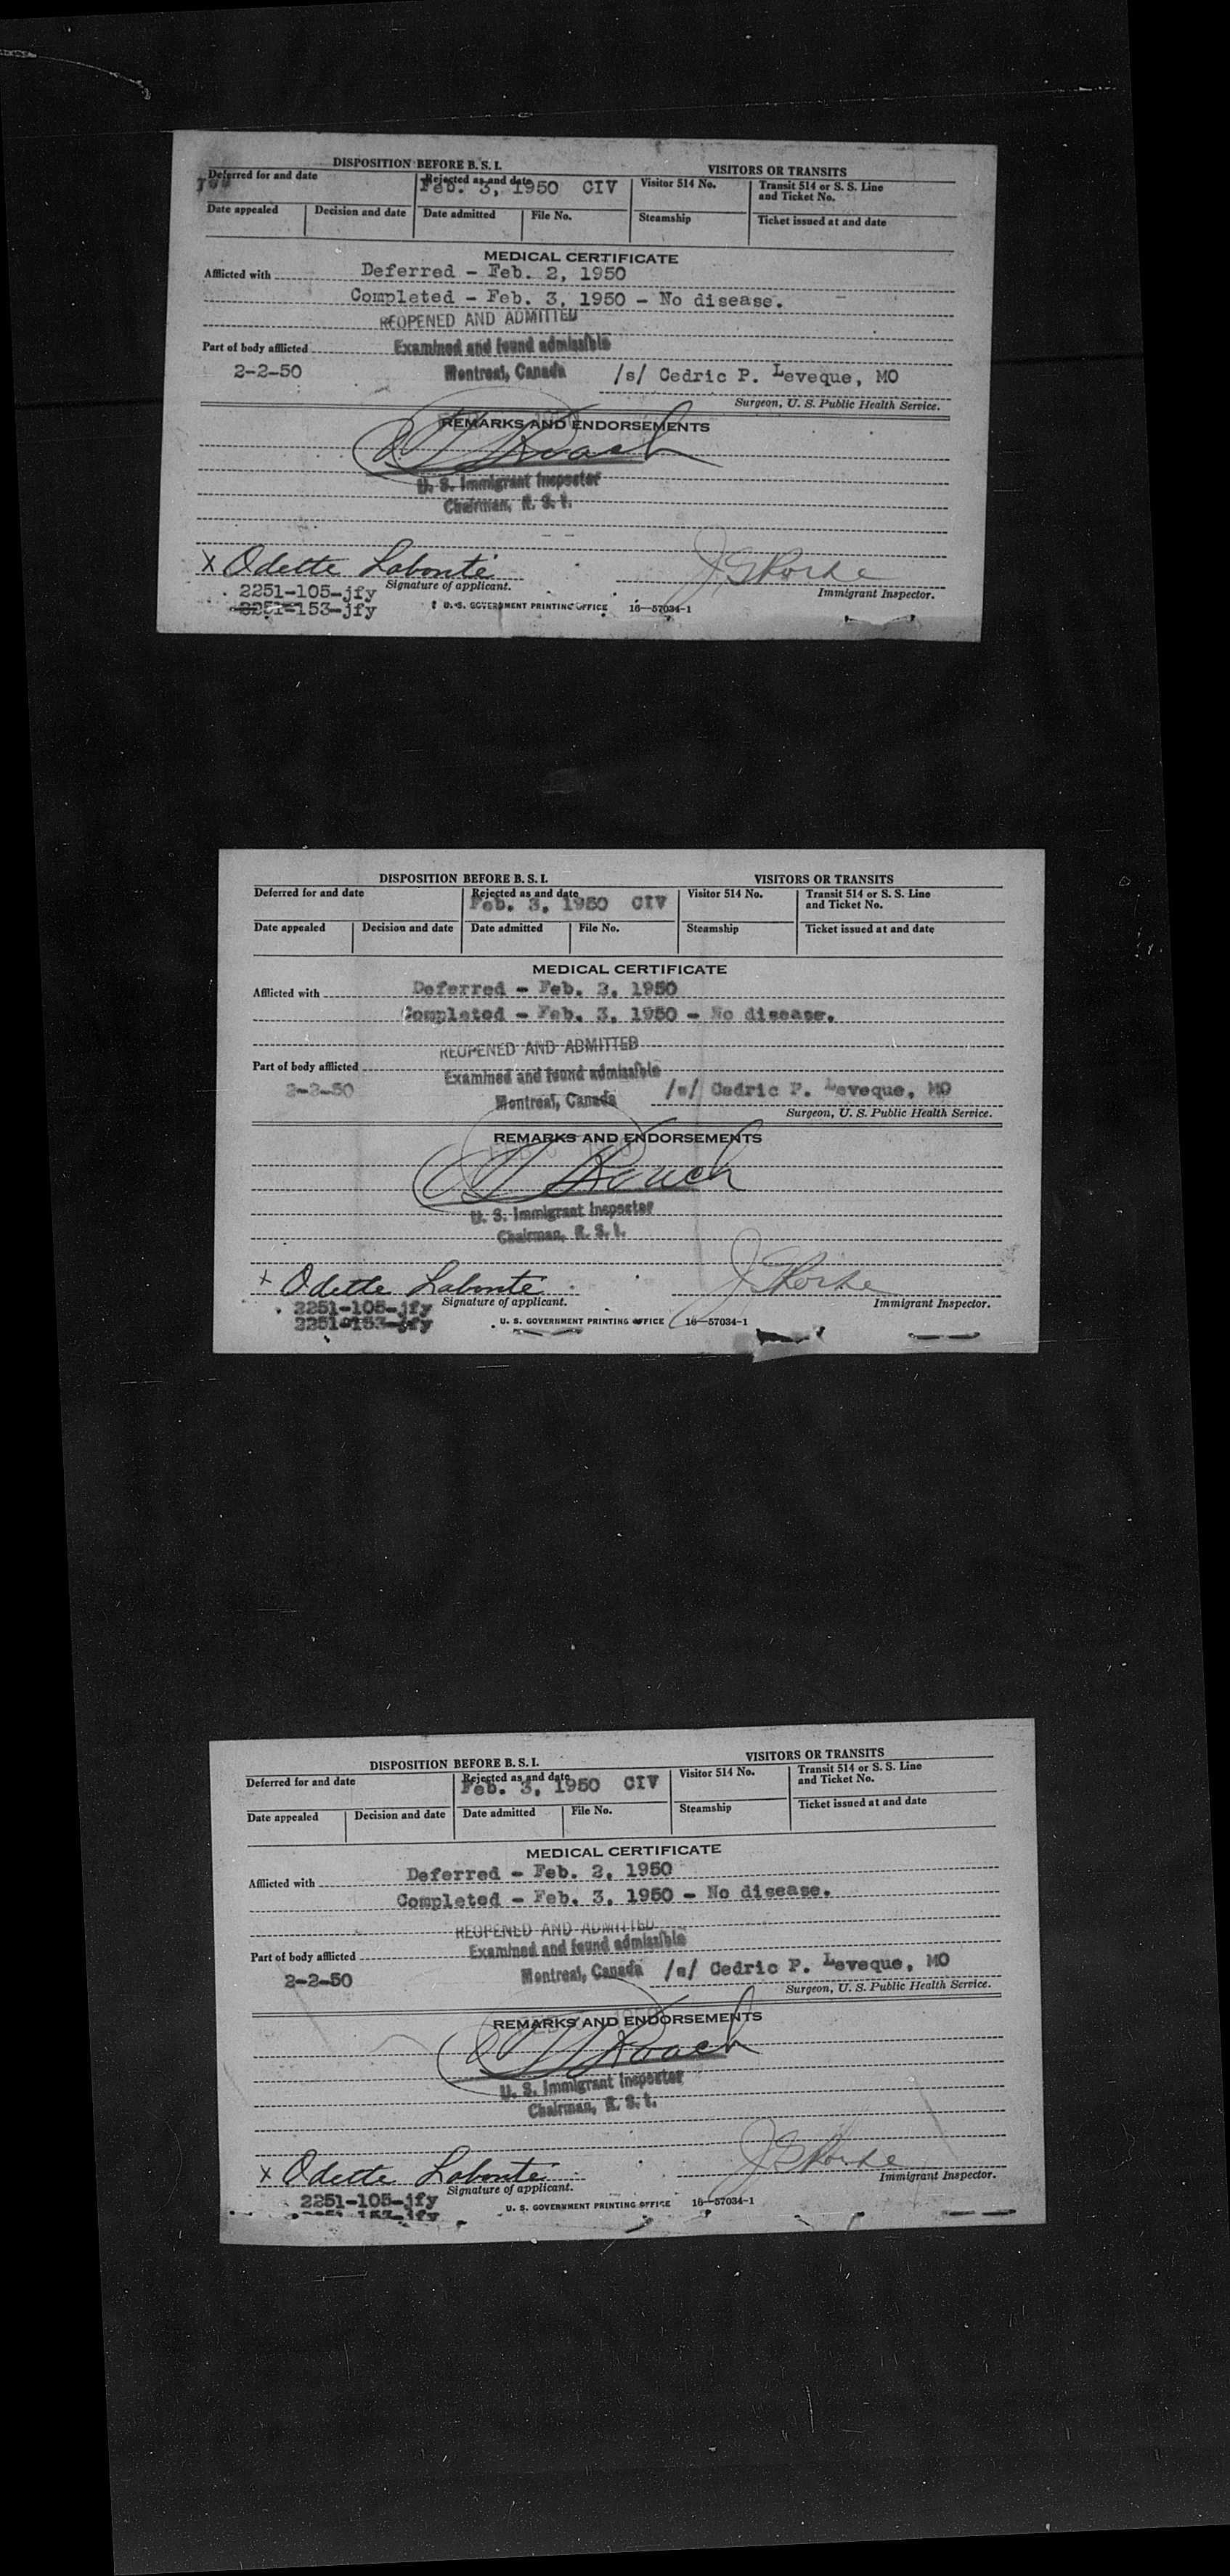 DISPOSITION BEFORE B. S. I. VISITORS OR TRANSITS
Deferred for and date Rejected as and date Visitor 514 No. Transit 514 or S. S. Line
and Ticket No.
Feb. 3, 1950 CIV
Date appealed Decision and date Date admitted File No. Steamship Ticket issued at and date
MEDICAL CERTIFICATE
Afflicted with Deferred - Feb. 2, 1950
Completed - Feb. 3, 1950 - No disease.
REOPENED AND ADMITTED
Part of body afflicted Examined and found admissible
2-2-50 Montreal, Canada /s/ Cedric P. Leveque, MO
Surgeon, U. S. Public Health Service.
REMARKS AND ENDORSEMENTS
Roach
U. S. Immigrant Inspector
Chairman, B. S. I.
X Odette Labonté
Signature of applicant.
Immigrant Inspector.
2251-105-jfy
2251-153-jfy
U. S. GOVERNMENT PRINTING OFFICE 16—57034-1
DISPOSITION BEFORE B. S. I. VISITORS OR TRANSITS
Deferred for and date Rejected as and date Visitor 514 No. Transit 514 or S. S. Line
and Ticket No.
Feb. 3, 1950 CIV
Date appealed Decision and date Date admitted File No. Steamship Ticket issued at and date
MEDICAL CERTIFICATE
Afflicted with Deferred - Feb. 2, 1950
Completed - Feb. 3, 1950 - No disease.
REOPENED AND ADMITTED
Part of body afflicted Examined and found admissible
2-2-50 Montreal, Canada /s/ Cedric P. Leveque, MO
Surgeon, U. S. Public Health Service.
REMARKS AND ENDORSEMENTS
Roach
U. S. Immigrant Inspector
Chairman, B. S. I.
x Odette Labonté
Signature of applicant.
Immigrant Inspector.
2251-105-jfy
2251-153-jfy
U. S. GOVERNMENT PRINTING OFFICE 16—57034-1
DISPOSITION BEFORE B. S. I. VISITORS OR TRANSITS
Deferred for and date Rejected as and date Visitor 514 No. Transit 514 or S. S. Line
and Ticket No.
Feb. 3, 1950 CIV
Date appealed Decision and date Date admitted File No. Steamship Ticket issued at and date
MEDICAL CERTIFICATE
Afflicted with Deferred - Feb. 2, 1950
Completed - Feb. 3, 1950 - No disease.
REOPENED AND ADMITTED
Part of body afflicted Examined and found admissible
2-2-50 Montreal, Canada /s/ Cedric P. Leveque, MO
Surgeon, U. S. Public Health Service.
REMARKS AND ENDORSEMENTS
Roach
U. S. Immigrant Inspector
Chairman, B. S. I.
x Odette Labonté
Signature of applicant.
Immigrant Inspector.
2251-105-jfy
U. S. GOVERNMENT PRINTING OFFICE 16—57034-1